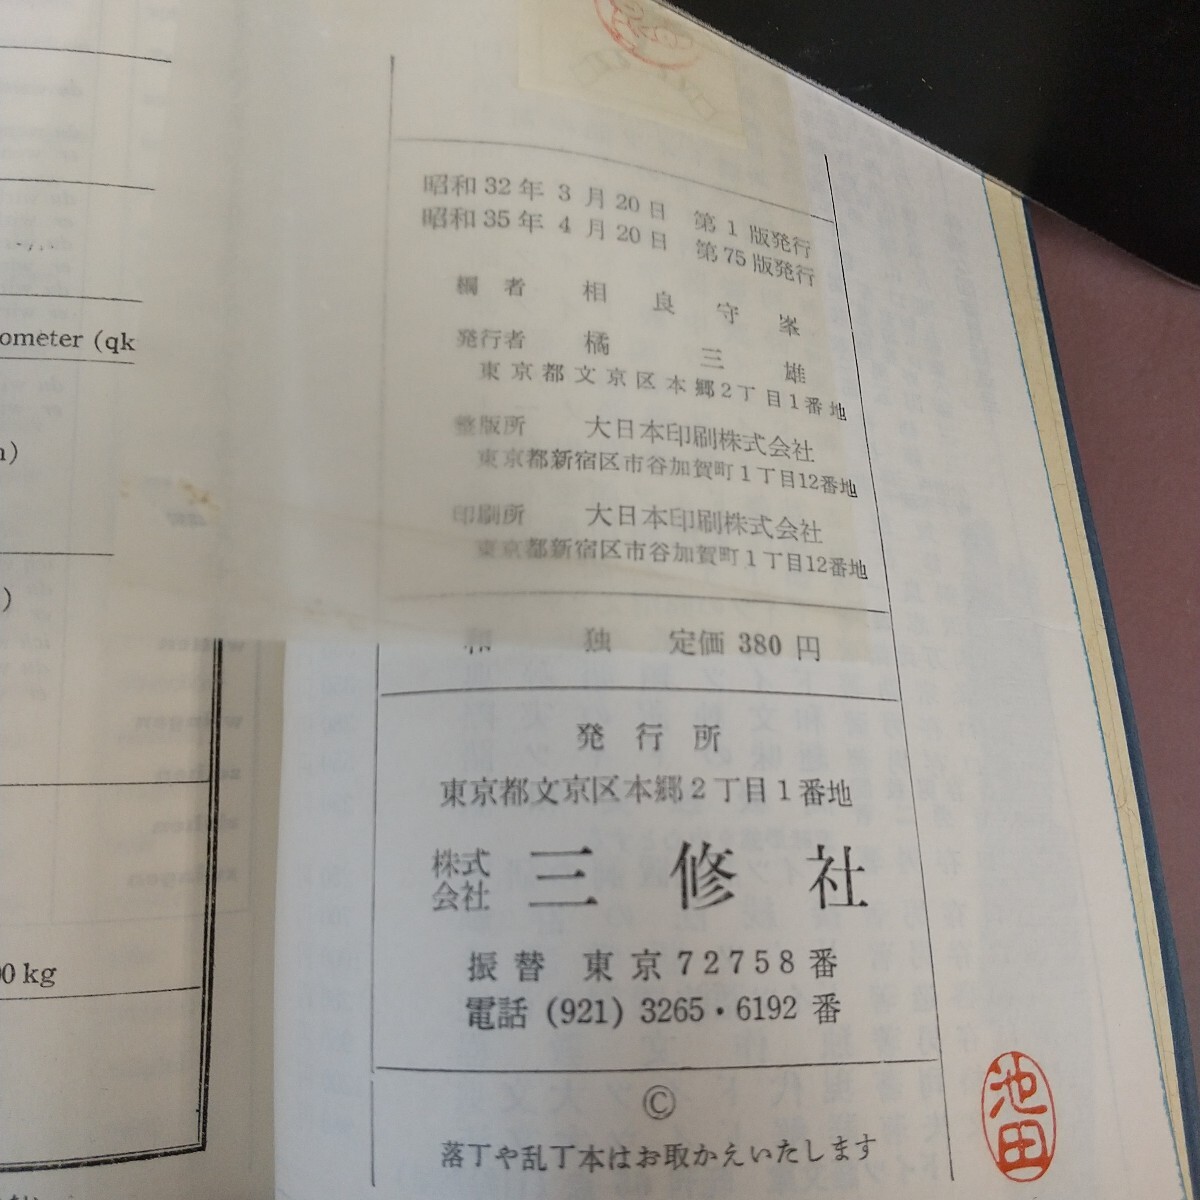 ometer (qk
00 kg
昭和32年 3 月 20 日 第 1 版発行
昭和35年 4 月 20 日 第 75 版発行
編者 相良守峯
発行者 橘三雄
東京都文京区本郷2丁目1番地
整版所 大日本印刷株式会社
東京都新宿区市谷加賀町1丁目12番地
印刷所 大日本印刷株式会社
東京都新宿区市谷加賀町1丁目12番地
和 独 定価 380 円
発行所
東京都文京区本郷2丁目1番地
株式会社 三修社
振替 東京 72758 番
電話 (921) 3265・6192 番
©
落丁や乱丁本はお取かえいたします
池田